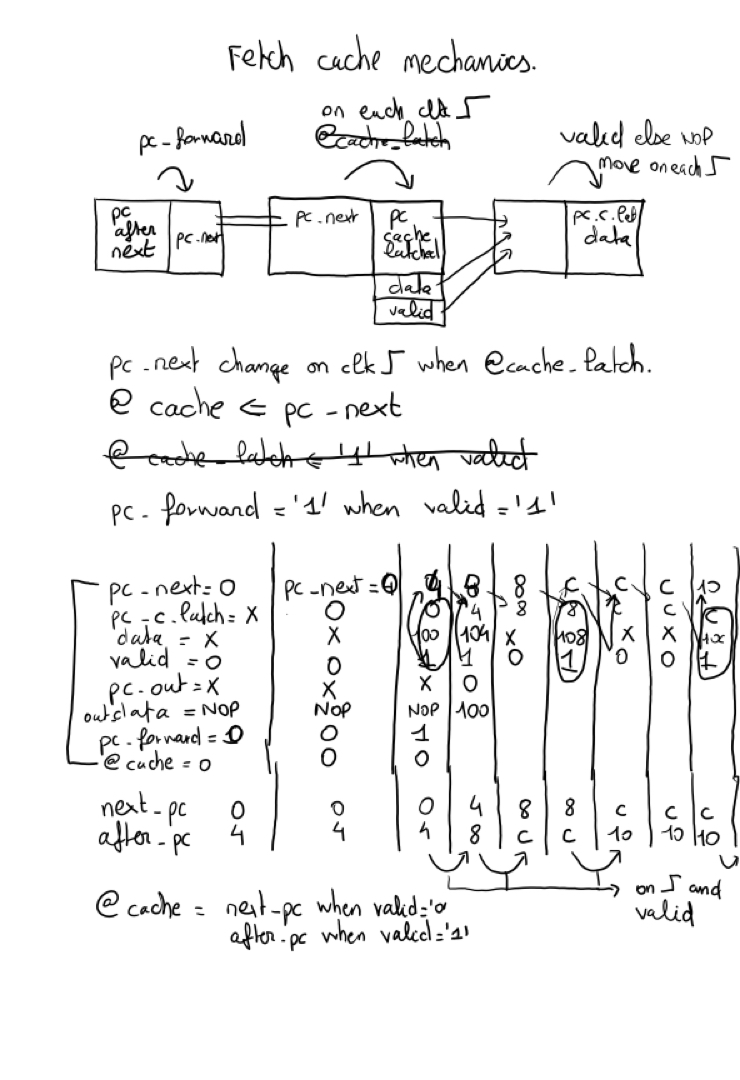 Fetch cache mechanics.
on each clk
@cache_latch
pc-forward
valid else NOP
move on each
pc after next
pc.next
pc.next
pc cache latched
data
valid
pc.c.lat
data
pc-next change on clk when @cache-latch.
@ cache ⇐ pc-next
@ cache-latch ⇐ '1' when valid
pc-forward='1' when valid='1'
pc-next=0 pc-next=0 4 8 8 c c c 10
pc-c.latch=X 0 0 4 8 8 c c c
data = X X 100 104 X 108 X X 10c
valid = 0 0 1 1 0 1 0 0 1
pc.out=X X X 0
outdata = NOP NOP NOP 100
pc-forward=0 0 1
@cache=0 0 0
next-pc 0 0 0 4 8 8 c c c
after-pc 4 4 4 8 c c 10 10 10
on and
valid
@ cache = next-pc when valid='0
after-pc when valid='1'